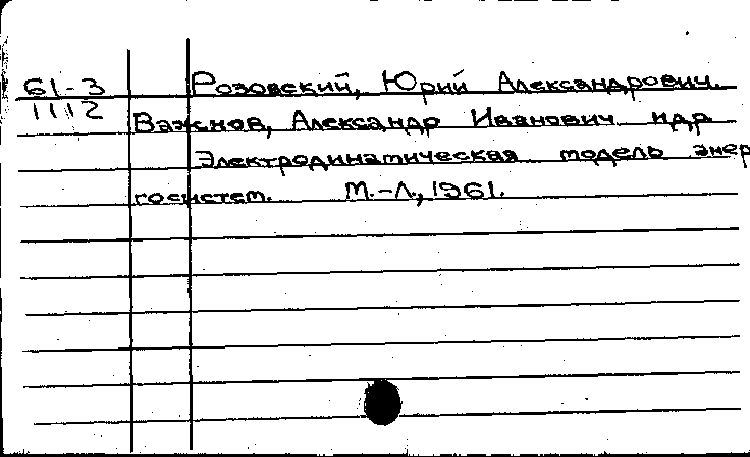 61-3
1112
Розовский, Юрий Александрович.
Важнов, Александр Иванович идр
Электродинамическая модель энер
госистем. М.-Л., 1961.